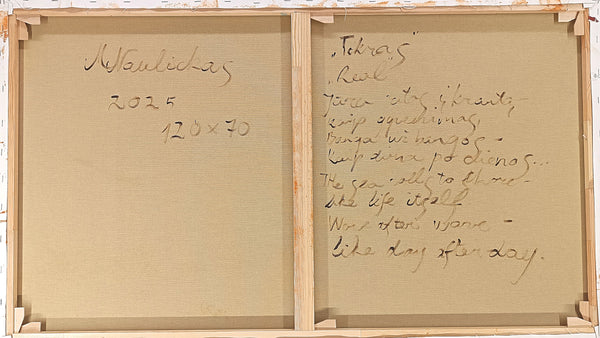 M Naulickas
2025
120x70
„Tikras"
„Real"
Jūra ritas į krantą-
kaip gyvenimas,
Banga už bangos -
Kaip diena po dienos...
The sea rolls to shore -
like life itself.
Wave after wave -
like day after day.